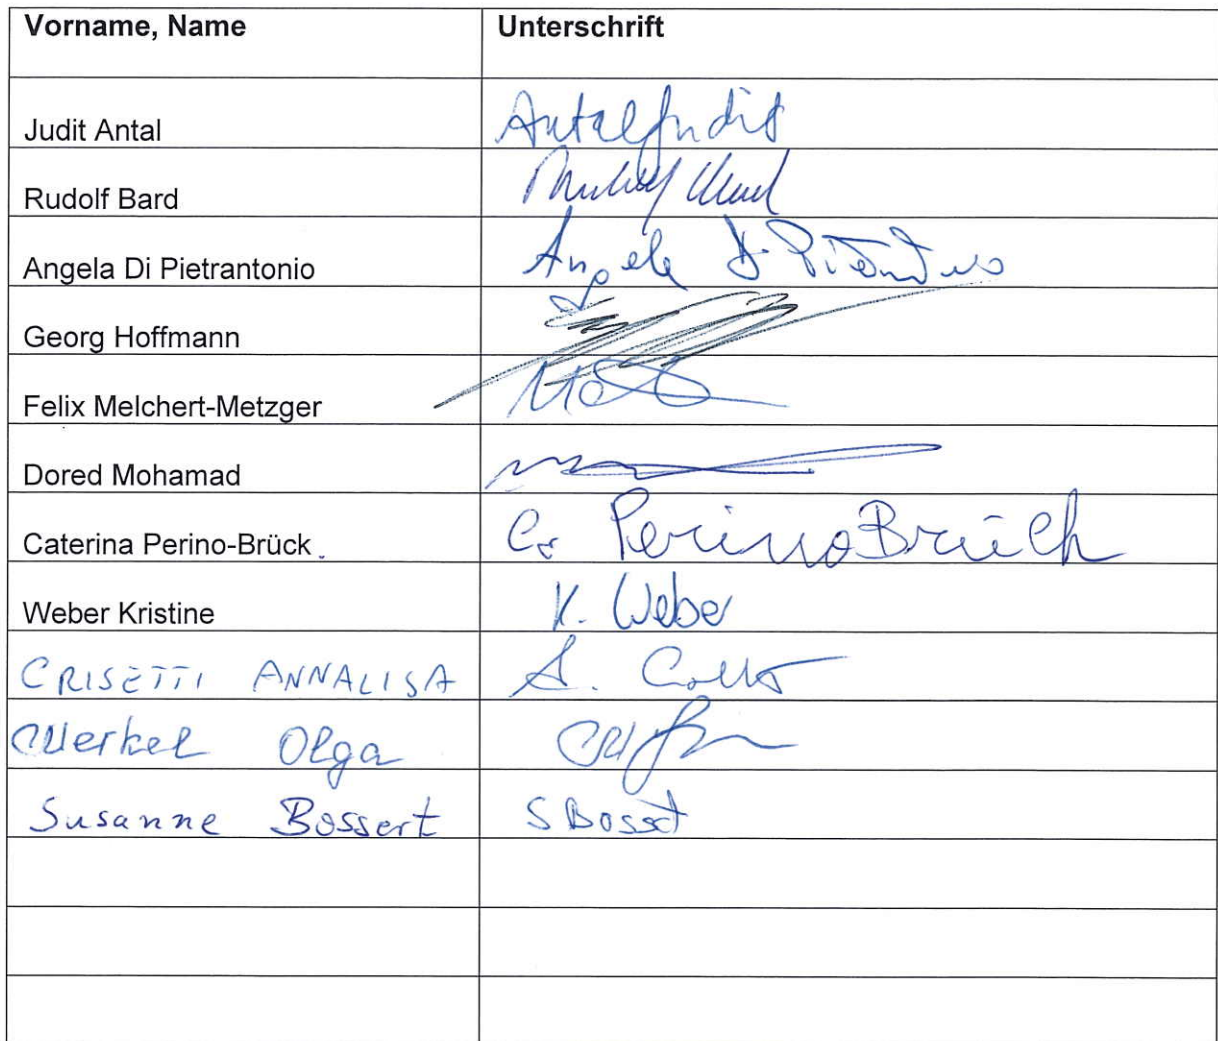 Vorname, Name Unterschrift
Judit Antal Antal Judit
Rudolf Bard
Angela Di Pietrantonio Angela Di
Georg Hoffmann
Felix Melchert-Metzger
Dored Mohamad
Caterina Perino-Brück Ca Perino Brück
Weber Kristine K. Weber
CRISETTI ANNALISA A.
Merkel Olga
Susanne Bossert S Bossert